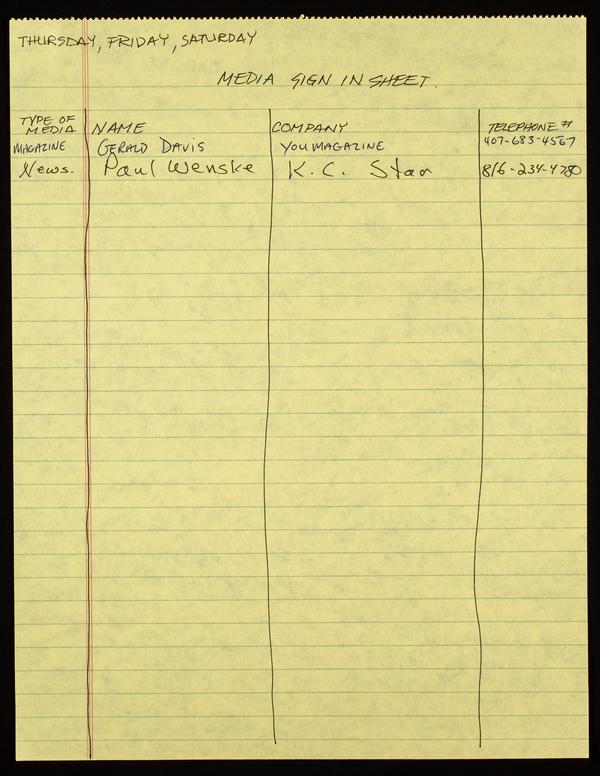 THURSDAY, FRIDAY, SATURDAY
MEDIA SIGN IN SHEET.
TYPE OF MEDIA NAME COMPANY TELEPHONE #
MAGAZINE GERALD DAVIS YOU MAGAZINE 407-683-4567
News. Paul Wenske K.C. Star 816-234-4780